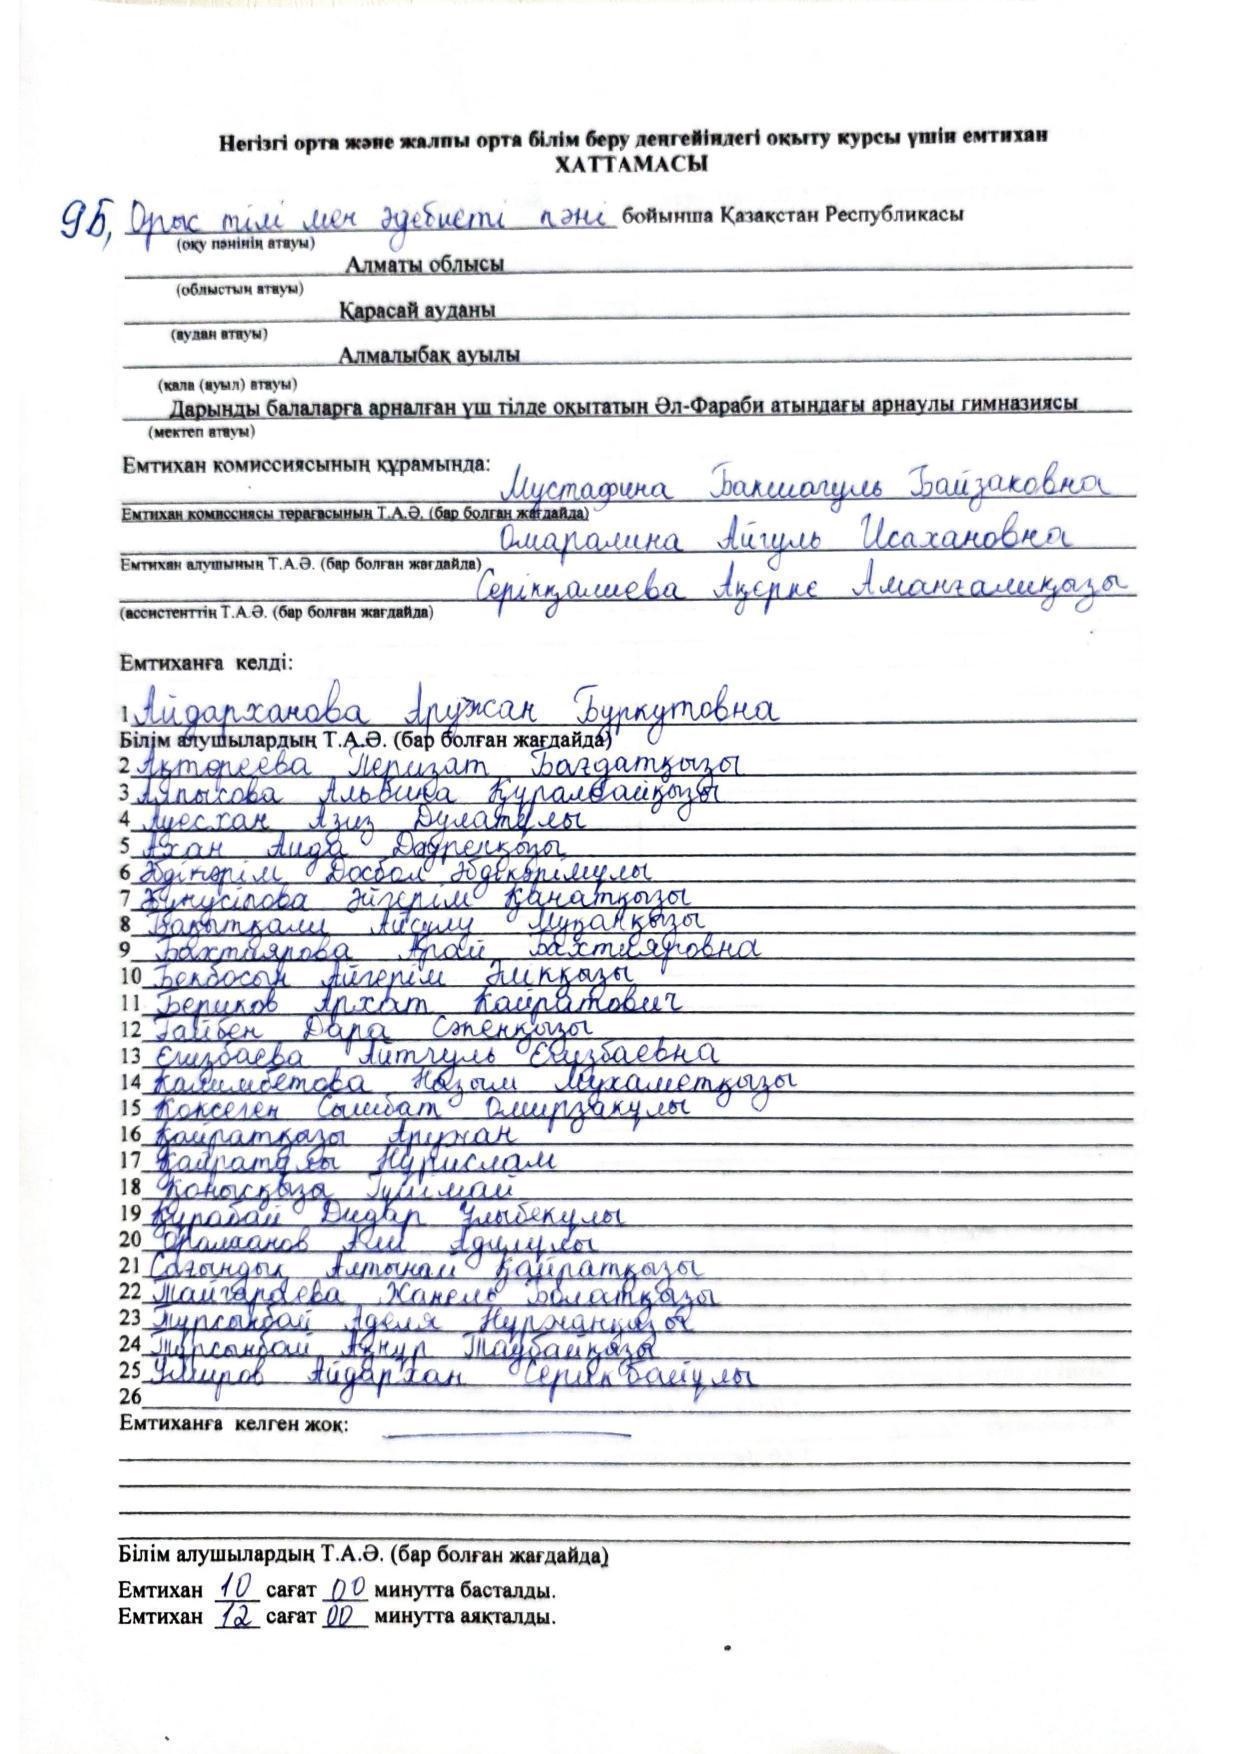 Негізгі орта және жалпы орта білім беру деңгейіндегі оқыту курсы үшін емтихан
ХАТТАМАСЫ
9Б, Орыс тілі мен әдебиеті пәні бойынша Қазақстан Республикасы
(оқу пәнінің атауы)
Алматы облысы
(облыстың атауы)
Қарасай ауданы
(аудан атауы)
Алмалыбақ ауылы
(қала (ауыл) атауы)
Дарынды балаларға арналған үш тілде оқытатын Әл-Фараби атындағы арнаулы гимназиясы
(мектеп атауы)
Емтихан комиссиясының құрамында:
Мустафина Бакшагуль Байзаковна
Емтихан комиссиясы төрағасының Т.А.Ә. (бар болған жағдайда)
Омаралина Айгуль Исахановна
Емтихан алушының Т.А.Ә. (бар болған жағдайда)
Серікқалиева Ақерке Аманғалиқызы
(ассистенттің Т.А.Ә. (бар болған жағдайда)
Емтиханға келді:
1 Айдарханова Аружан Буркутовна
Білім алушылардың Т.А.Ә. (бар болған жағдайда)
2 Ақтореева Перизат Бағдатқызы
3 Альвина Құралбайқызы
4 Ауесхан Азиз Дулатұлы
5 Ахан Аида Дәуренқызы
6 Әбдікәрім Досбол Әбдікәрімұлы
7 Әйгерім Қанатқызы
8 Бақытқали Айсулу Мұқанқызы
9 Бахтиярова Арай Бахтияровна
10 Бекбосын Айгерім
11 Бериков Архат Кайратович
12 Ғайбен Дара Сәкенқызы
13 Егизбаева Айтгуль Егизбаевна
14 Калимбетова Назым Мухаметқызы
15 Коксеген Сымбат Омирзакұлы
16 Қайратқызы Аружан
17 Қайратұлы Нұрислам
18 Қонысқызы Гүлімай
19 Құрабай Дидар Ұлыбекұлы
20 Али Адилұлы
21 Сағындық Алтынай Қайратқызы
22 Жанель Болатқызы
23 Тұрсынбай Аделя Нұржанқызы
24 Тұрсынбай Ақнұр Таубайқызы
25 Умиров Айдархан Серикбайұлы
26
Емтиханға келген жоқ:
Білім алушылардың Т.А.Ә. (бар болған жағдайда)
Емтихан 10 сағат 00 минутта басталды.
Емтихан 12 сағат 00 минутта аяқталды.